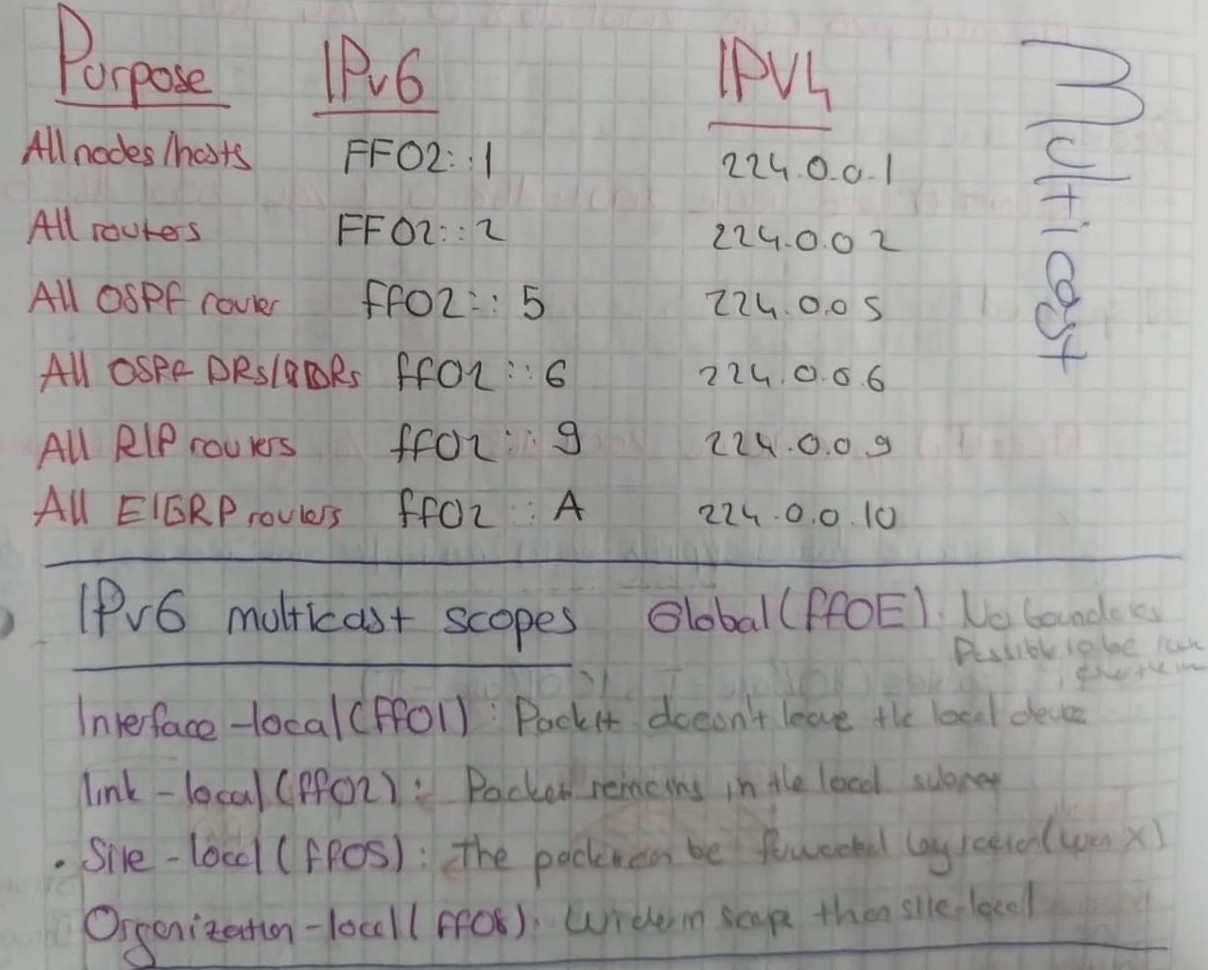 Purpose IPv6 IPv4
Multicast
All nodes/hosts FF02::1 224.0.0.1
All routers FF02::2 224.0.0 2
All OSPF router FF02:: 5 224.0.0 5
All OSPF DRs/BDRs ff02::6 224.0.0 6
All RIP routers ff02:: 9 224.0.0.9
All EIGRP routers ff02:: A 224.0.0.10
IPv6 multicast scopes Global (ff0E): No
Possible to be
Interface-local (ff01): Packet doesn't leave the local device
link-local (ff02): Packet remains in the local subnet
. Site-local (ff05): The packet can be forwarded by (wan X)
Organization-local (ff08): Wider in scope than site-local